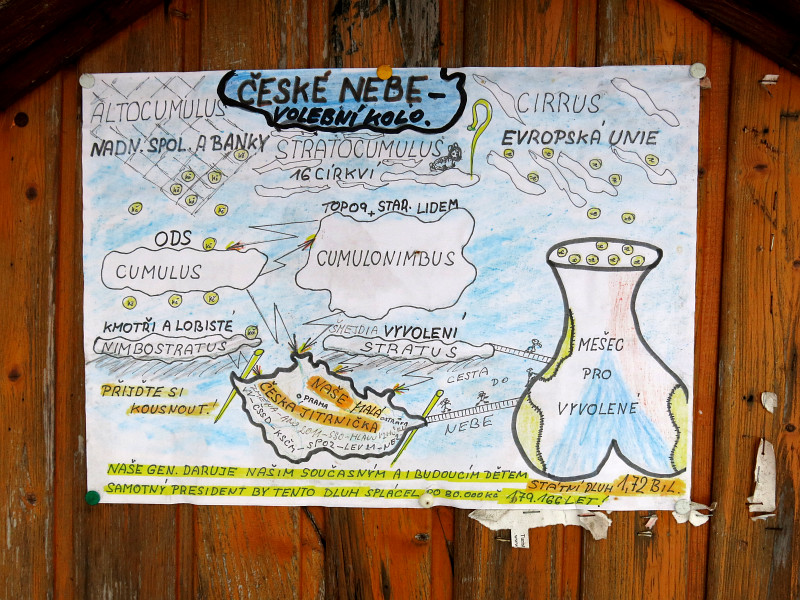 ČESKÉ NEBE-
VOLEBNÍ KOLO.
ALTOCUMULUS
NADN. SPOL. A BANKY
STRATOCUMULUS
16 CÍRKVÍ
CIRRUS
EVROPSKÁ UNIE
TOP09+STAR. LIDEM
CUMULONIMBUS
ODS
CUMULUS
KMOTŘI A LOBISTÉ
NIMBOSTRATUS
ŠMEJDI A VYVOLENÍ
STRATUS
PŘIJĎTE SI
KOUSNOUT!
CESTA DO
NEBE
MĚŠEC
PRO
VYVOLENÉ
NAŠE MALÁ
ČESKÁ JITRNIČKA
PRAHA
OSTRAVA
ČSSD-KSČM-SPOZ-LEV 21-NE
NAŠE GEN. DARUJE NAŠIM SOUČASNÝM A I BUDOUCÍM DĚTEM STÁTNÍ DLUH 1,72 BIL
SAMOTNÝ PRESIDENT BY TENTO DLUH SPLÁCEL PO 80.000 KČ 1,79.166 LET!